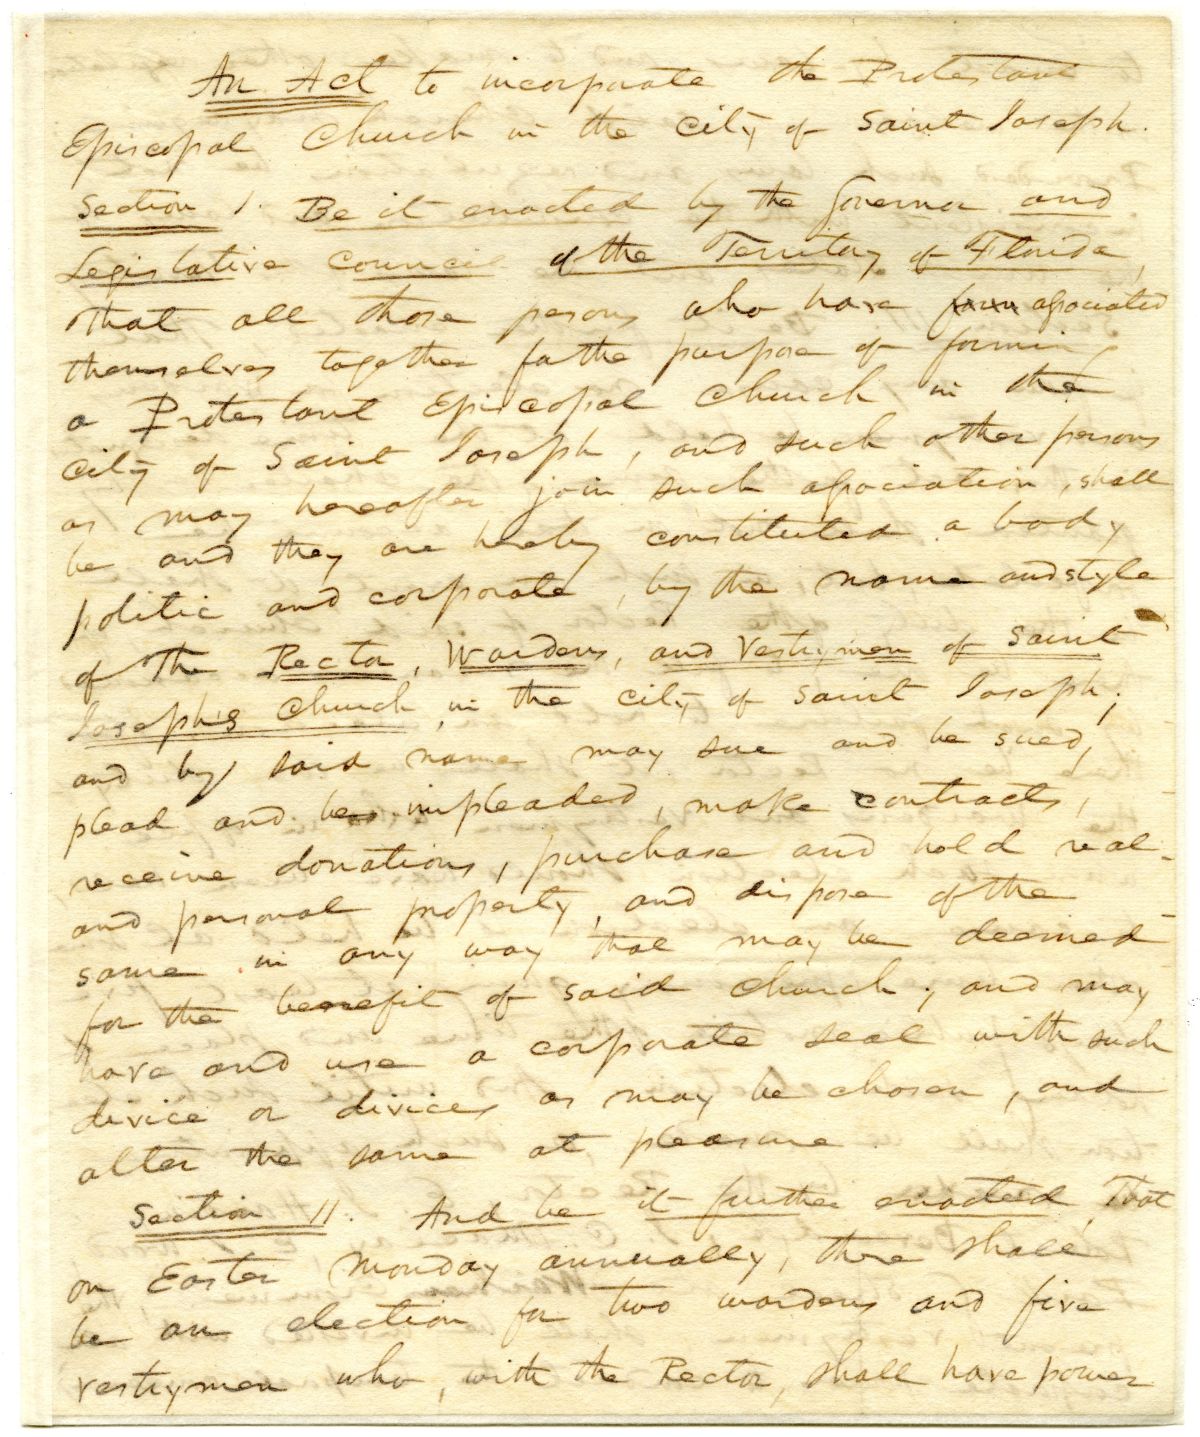 An Act to incorporate the Protestant
Episcopal Church in the city of Saint Joseph.
Section 1. Be it enacted by the Governor and
Legislative Council of the Territory of Florida,
That all those persons who have form associated
themselves together for the purpose of forming
a Protestant Episcopal Church in the
city of Saint Joseph, and such other persons
as may hereafter join such association, shall
be and they are hereby constituted a body
politic and corporate, by the name and style
of The Rector, Wardens, and Vestrymen of Saint
Joseph's Church, in the city of Saint Joseph;
and by said name may sue and be sued,
plead and be impleaded, make contracts,
receive donations, purchase and hold real
and personal property, and dispose of the
same in any way that may be deemed
for the benefit of said church; and may
have and use a corporate seal with such
divice or divices as may be chosen, and
alter the same at pleasure.
Section 11. And be it further enacted, That
on Easter Monday annually, there shall
be an election for two wardens and five
vestrymen who, with the Rector, shall have power